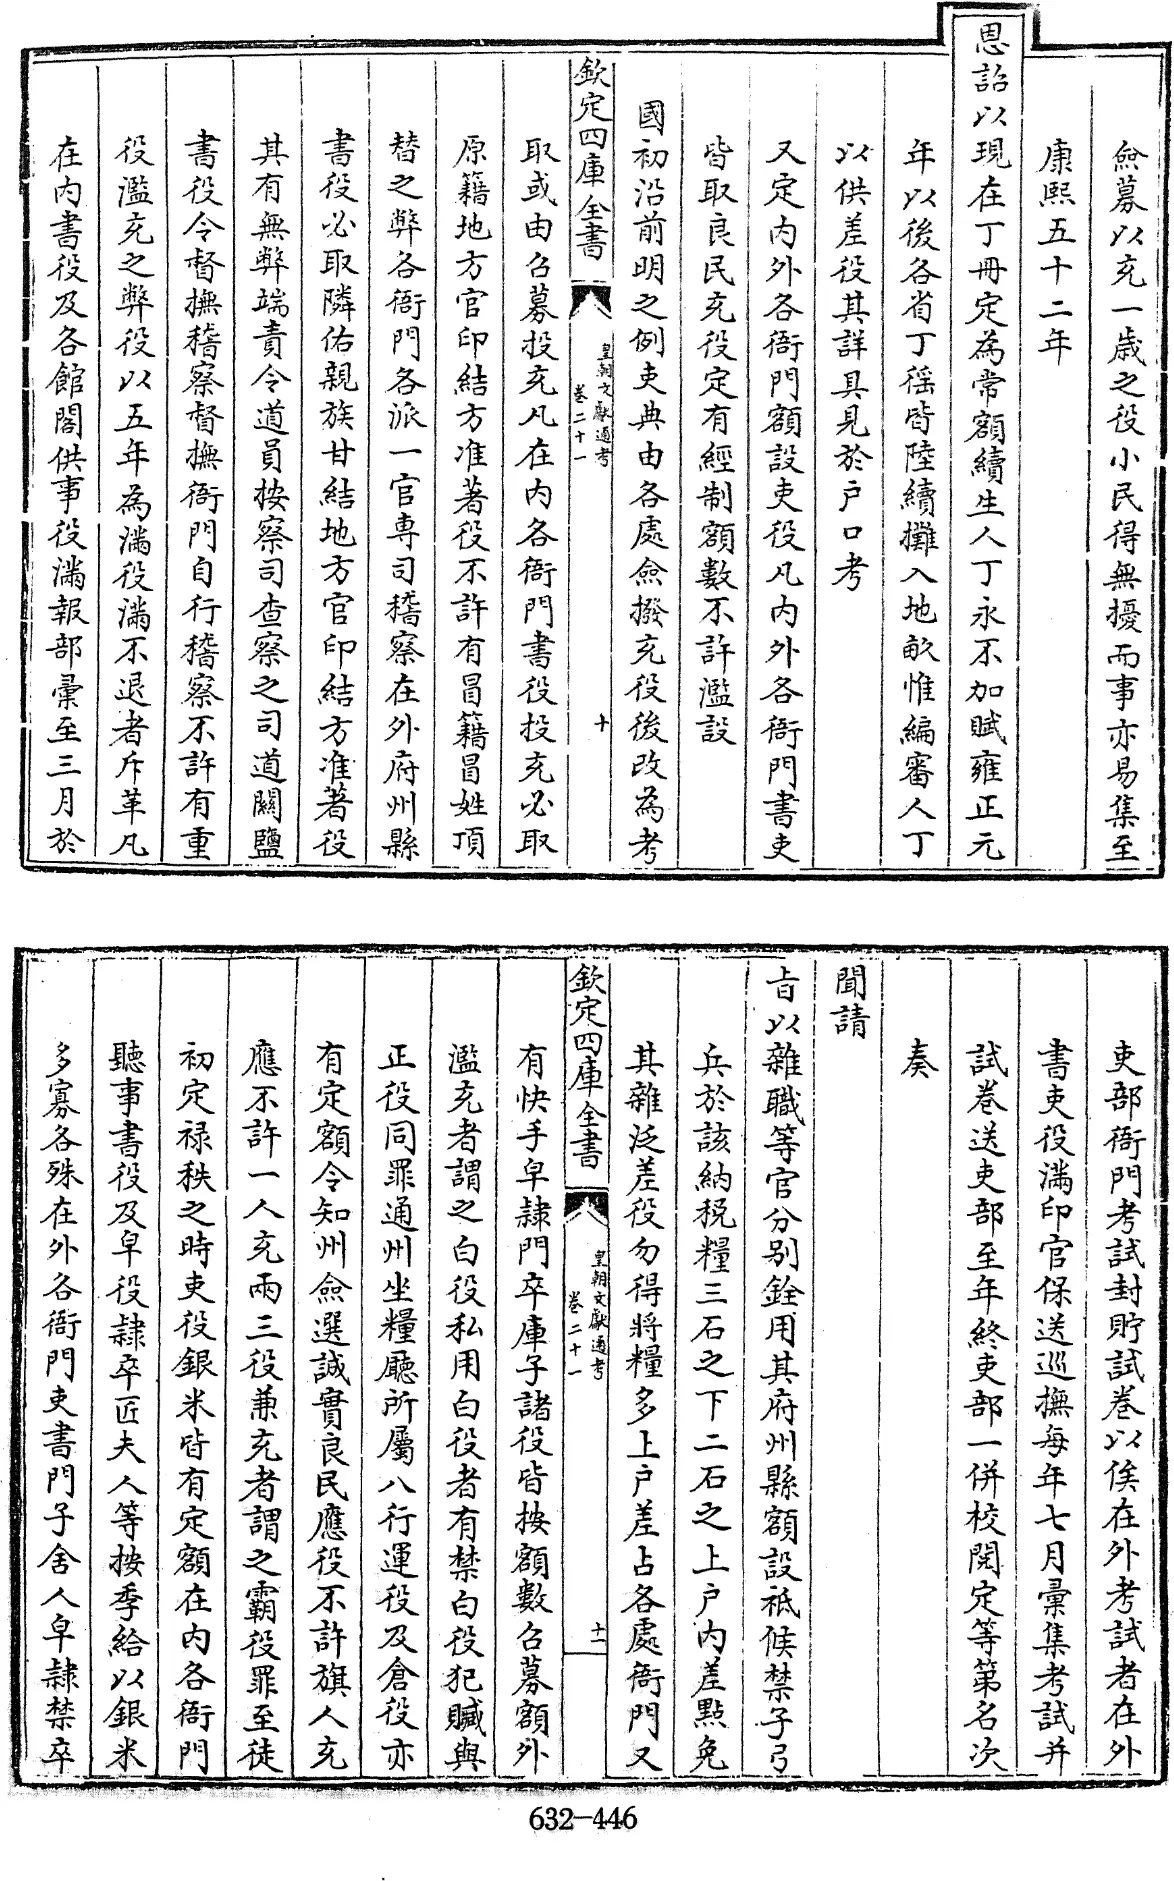 僉募以充一歳之役小民得無擾而事亦易集至
康熙五十二年
恩詔以現在丁冊定為常額續生人丁永不加賦雍正元
年以後各省丁徭皆陸續攤入地畝惟編審人丁
以供差役其詳具見於户口考
又定内外各衙門額設吏役凡内外各衙門書吏
皆取良民充役定有經制額數不許濫設
國初沿前明之例吏典由各處僉撥充役後改為考
欽定四庫全書
皇朝文獻通考
卷二十一
十
取或由召募投充凡在内各衙門書役投充必取
原籍地方官印結方准著役不許有冒籍冒姓頂
替之弊各衙門各派一官専司稽察在外府州縣
書役必取隣佑親族甘結地方官印結方准著役
其有無弊端責令道員按察司查察之司道關鹽
書役令督撫稽察督撫衙門自行稽察不許有重
役濫充之弊役以五年為滿役滿不退者斥革凡
在内書役及各館閣供事役滿報部彙至三月於
吏部衙門考試封貯試卷以俟在外考試者在外
書吏役滿印官保送巡撫每年七月彙集考試并
試卷送吏部至年終吏部一併校閱定等第名次
奏
聞請
旨以雜職等官分別銓用其府州縣額設祗候禁子弓
兵於該納税糧三石之下二石之上户内差點免
其雜泛差役勿得將糧多上户差占各處衙門又
欽定四庫全書
皇朝文獻通考
卷二十一
十一
有快手皁隷門卒庫子諸役皆按額數召募額外
濫充者謂之白役私用白役者有禁白役犯贓與
正役同罪通州坐糧廳所屬八行運役及倉役亦
有定額令知州僉選誠實良民應役不許旗人充
應不許一人充兩三役兼充者謂之霸役罪至徒
初定禄秩之時吏役銀米皆有定額在内各衙門
聽事書役及皁役隷卒匠夫人等按季給以銀米
多寡各殊在外各衙門吏書門子舍人皁隷禁卒
632-446